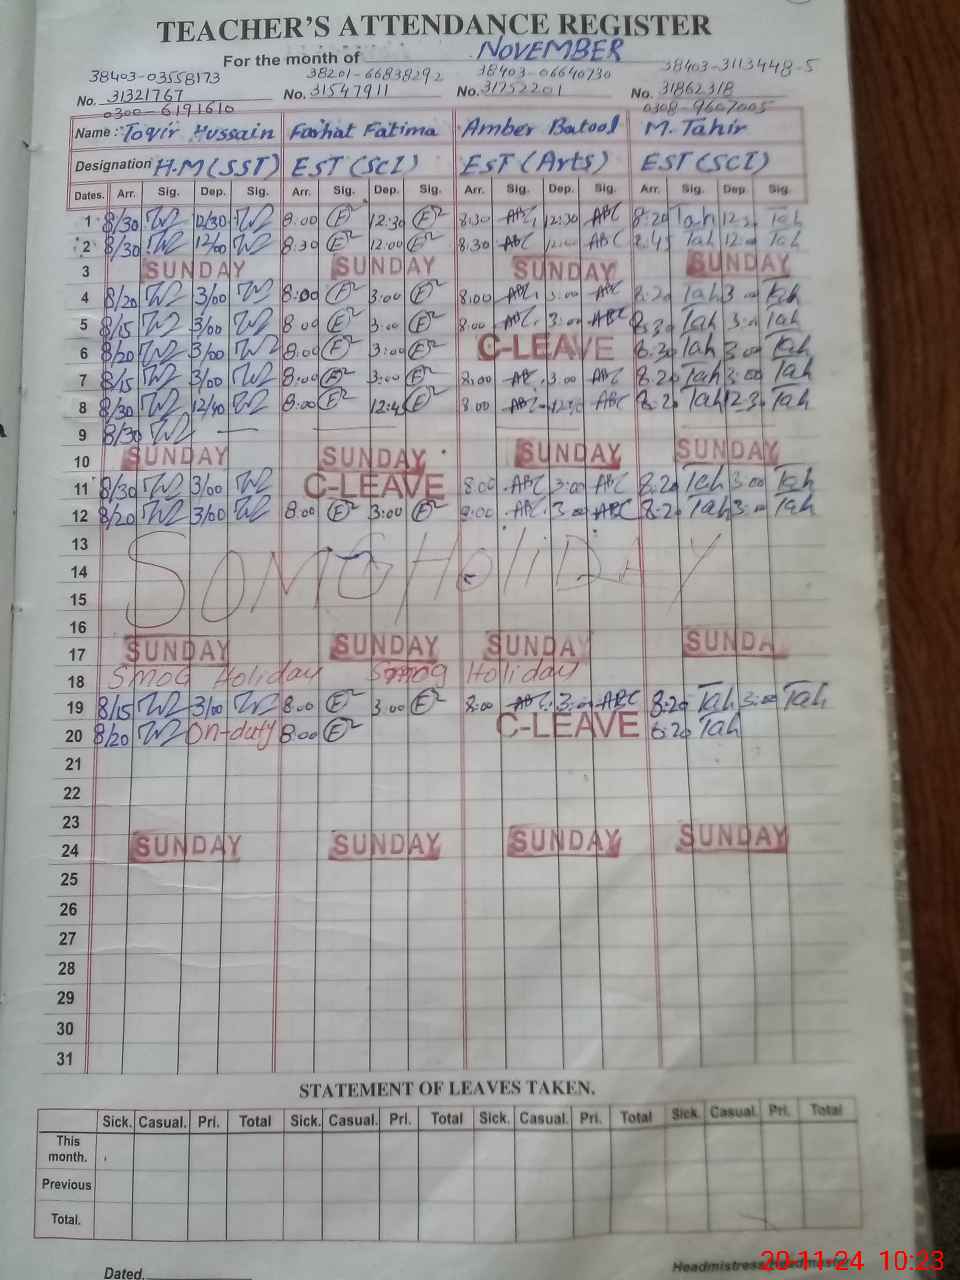 TEACHER'S ATTENDANCE REGISTER
For the month of NOVEMBER
38403-03558173 38201-66838292 38403-06640730 38403-3113448-5
No. 31321767 No. 31547911 No. 31752201 No. 31862318
0300-6191610 0308-9607005
Name: Toqir Hussain Farhat Fatima Amber Batool M. Tahir
Designation H.M (SST) EST (SCI) EST (Arts) EST (SCI)
Dates. Arr. Sig. Dep. Sig. Arr. Sig. Dep. Sig. Arr. Sig. Dep. Sig. Arr. Sig. Dep. Sig.
1 8/30 12/30 8:00 12:30 8:30 ABC 12:30 ABC 8:20 Tah Tah
2 8/30 12/00 8:30 12:00 8.30 ABC ABC 8.45 Tah Tah
3 SUNDAY SUNDAY SUNDAY SUNDAY
4 8/20 3/00 8:00 3:00 8:00 ABC 3:00 ABC 8:20 Tah Tah
5 8/15 3/00 8:00 3:00 8:00 ABC 3:00 ABC 8.30 Tah Tah
6 8/20 3/00 8:00 3:00 C-LEAVE 8.30 Tah 3:00 Tah
7 8/15 3/00 8:00 3:00 8:00 3:00 ABC 8:20 Tah 3:00 Tah
8 8/30 12/40 8:00 12:4 8:00 ABC ABC 8:20 Tah Tah
9 8/30
10 SUNDAY SUNDAY SUNDAY SUNDAY
11 8/30 3/00 C-LEAVE 8.00 ABC 3:00 ABC 8:20 Tah 3:00 Tah
12 8/20 3/00 8:00 3:00 8:00 ABC 3:00 ABC 8:20 Tah Tah
13
14 SOMG HoliDAY
15
16
17 SUNDAY SUNDAY SUNDAY SUNDAY
18 Smog Holiday Smog Holiday
19 8/15 3/00 8:00 3:00 8:00 ABC 3:00 ABC 8:20 Tah 3:00 Tah
20 8/20 On-duty 8:00 C-LEAVE Tah
21
22
23
24 SUNDAY SUNDAY SUNDAY SUNDAY
25
26
27
28
29
30
31
STATEMENT OF LEAVES TAKEN.
Sick. Casual. Pri. Total Sick. Casual. Pri. Total Sick. Casual. Pri. Total Sick. Casual. Pri. Total
This month.
Previous
Total.
Dated. Headmistress/Headmaster
20 11 24 10:23